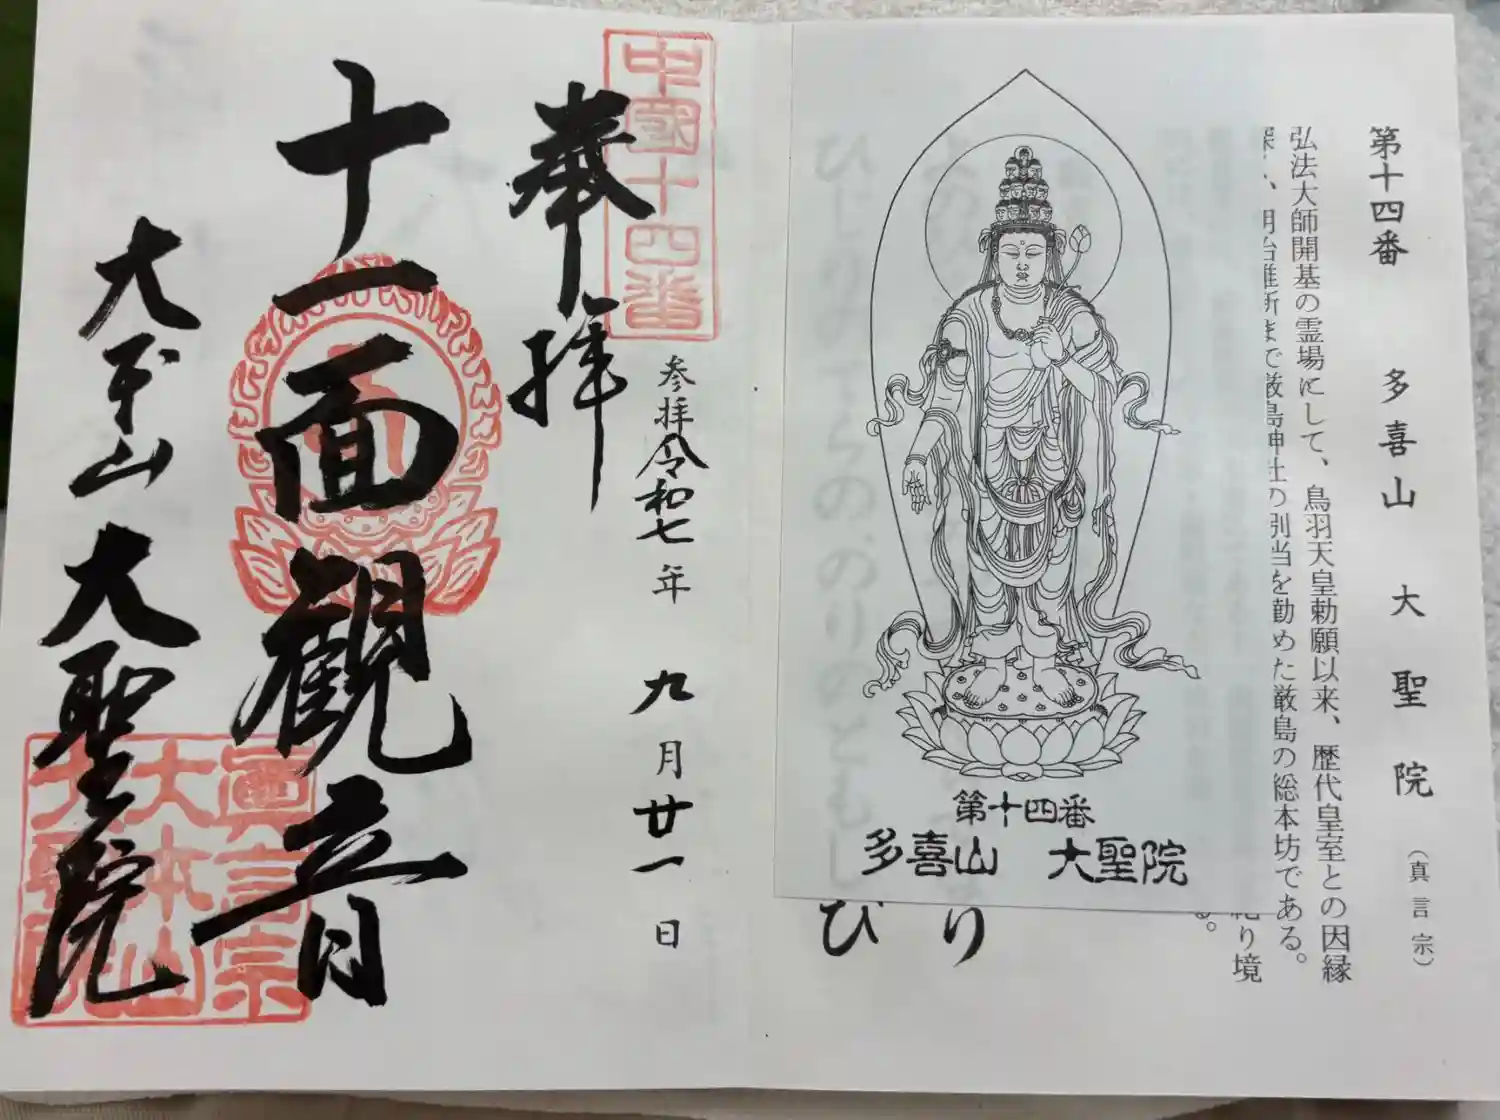 第十四番 多喜山 大聖院 (真言宗)
弘法大師開基の霊場にして、鳥羽天皇勅願以来、歴代皇室との因縁
明治維新まで厳島神社の別当を勤めた厳島の総本坊である。
り境
る。
り
び
第十四番
多喜山 大聖院
中國十四番
奉拝
参拝令和七年 九月廿一日
十一面観音
大本山 大聖院
眞言宗
大本山
大聖院